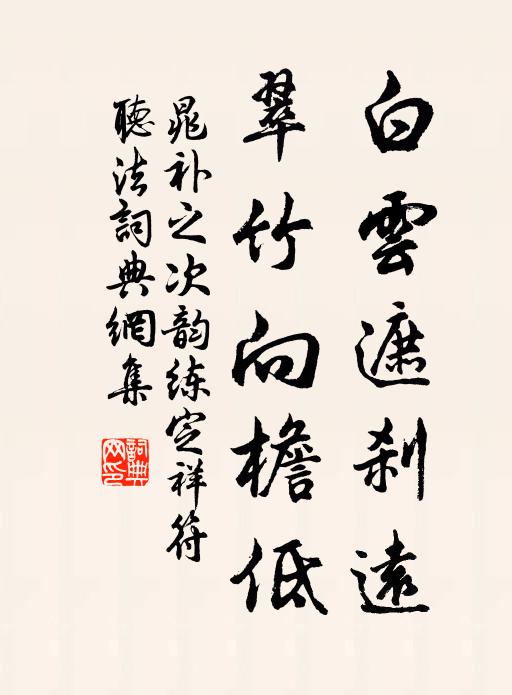 白雲遮刹遠
翠竹向檐低
晁补之次韵练定祥符
聽法詞典網集
詞典网印